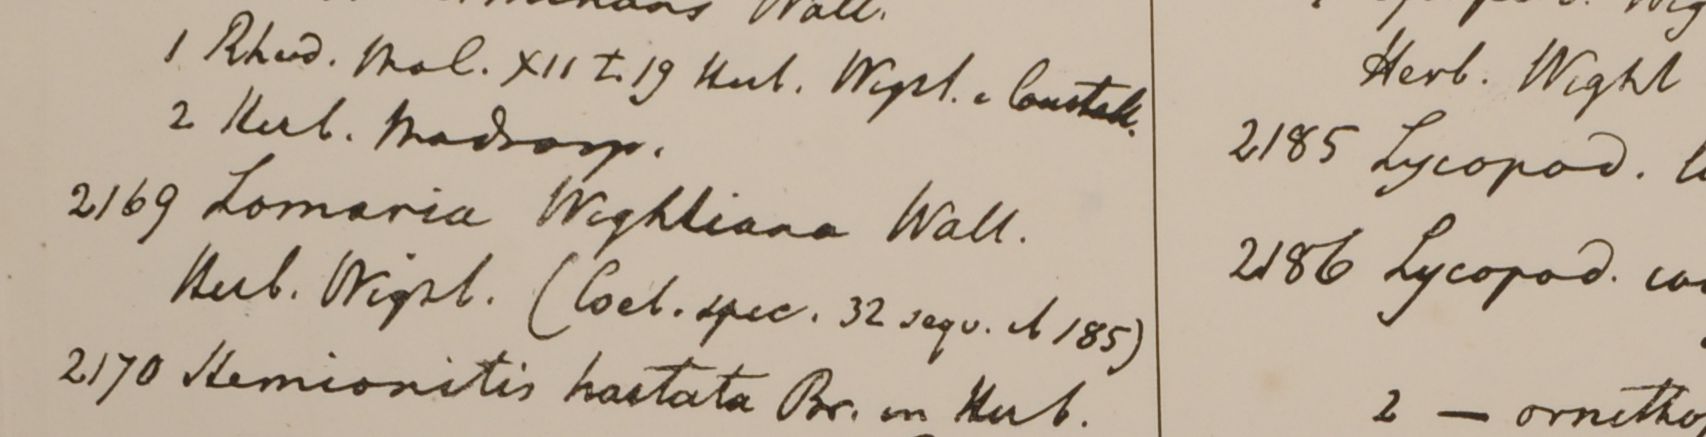 Wall.
1 Rheed. Mal. XII t. 19 Herb. Wight. e Courtall.
2 Herb. Madrasp.
2169 Lomaria Wightiana Wall.
Herb. Wight. (Coel. spec. 32 sequ. et 185)
2170 Hemionitis hastata Br. in Herb.
Herb. Wight
2185 Lycopod.
2186 Lycopod.
2 — ornitho